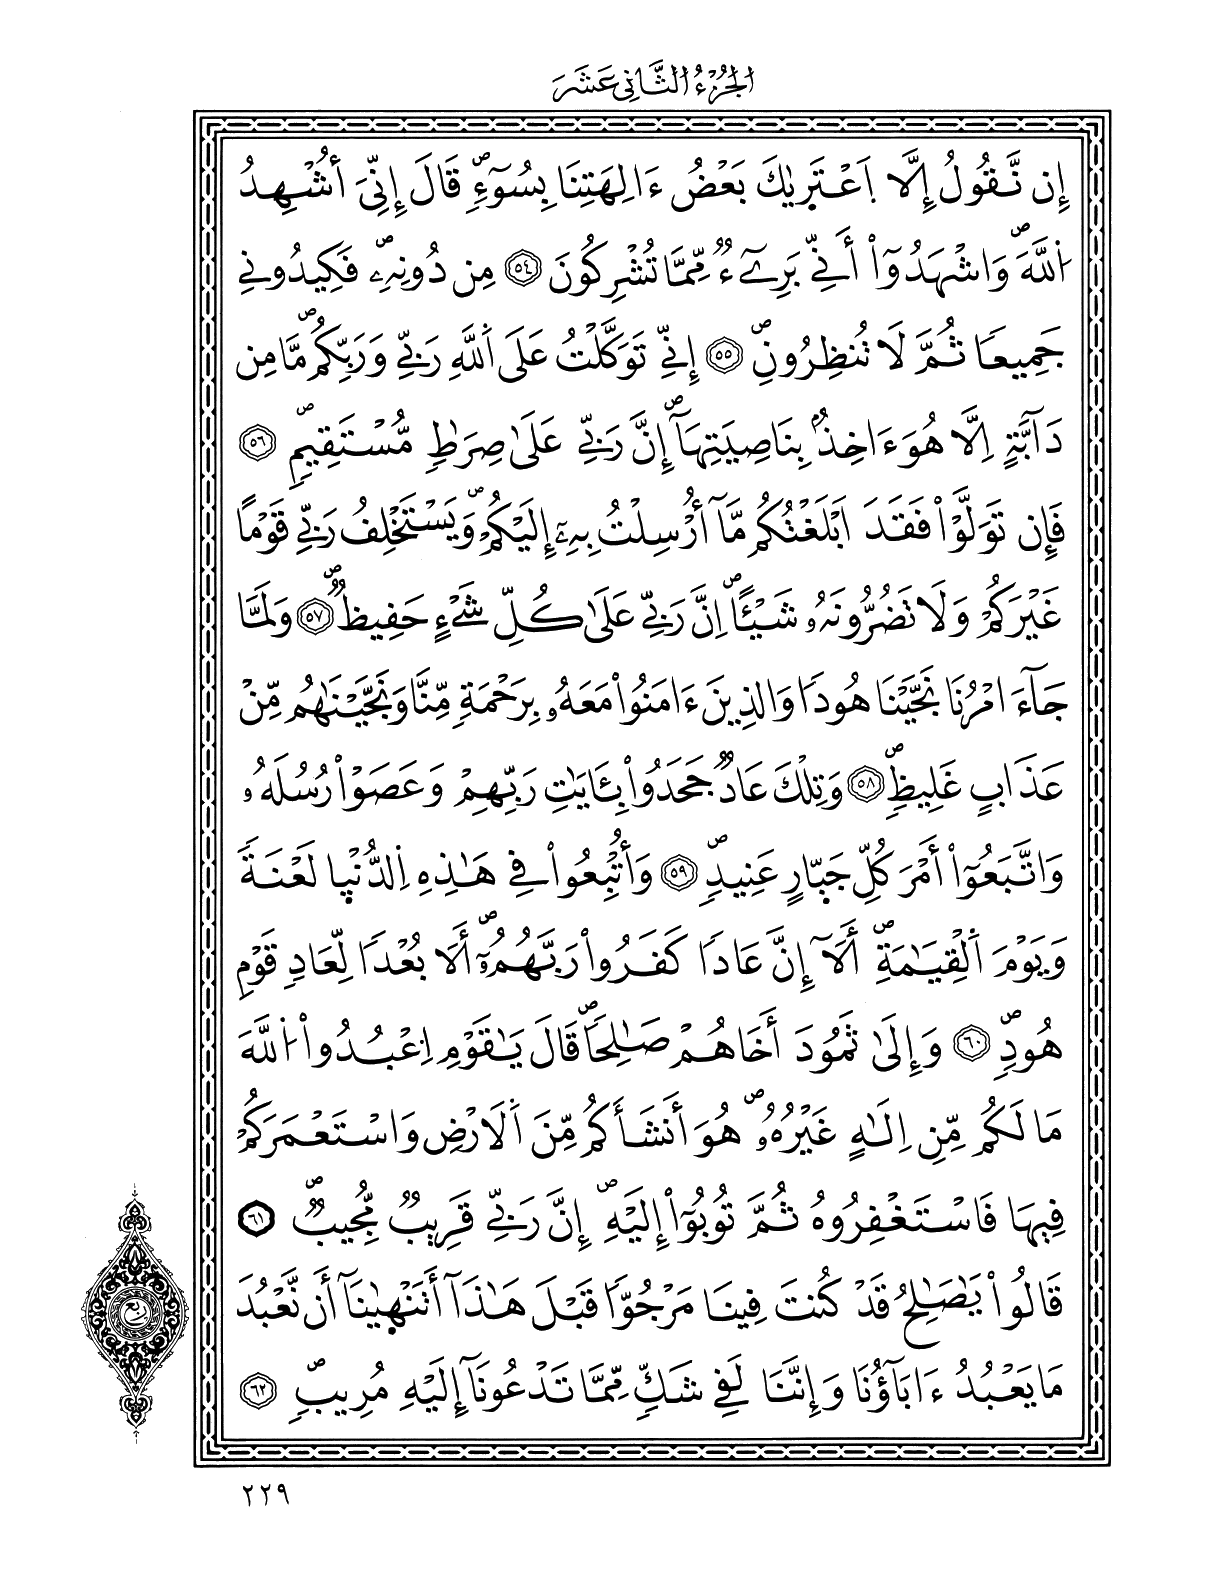 الجُزْءُ الثَّانِي عَشَرَ
إِن نَّقُولُ إِلَّا اَ۪عْتَر۪يٰكَ بَعْضُ ءَالِهَتِنَا بِسُوٓءٖۖ قَالَ إِنِّيَ أُشْهِدُ
اُ۬للَّهَۖ وَاشْهَدُوٓاْ أَنِّے بَرِےٓءٞ مِّمَّا تُشْرِكُونَ ٥٤ مِن دُونِهِۦۖ فَكِيدُونِے
جَمِيعاٗ ثُمَّ لَا تُنظِرُونِۖ ٥٥ إِنِّے تَوَكَّلْتُ عَلَى اَ۬للَّهِ رَبِّے وَرَبِّكُمۖ مَّا مِن
دَآبَّةٍ اِلَّا هُوَ ءَاخِذُۢ بِنَاصِيَتِهَآۖ إِنَّ رَبِّے عَلَىٰ صِرَٰطٖ مُّسْتَقِيمٖۖ ٥٦
فَإِن تَوَلَّوْاْ فَقَدَ اَبْلَغْتُكُم مَّآ أُرْسِلْتُ بِهِۦٓ إِلَيْكُمْۖ وَيَسْتَخْلِفُ رَبِّے قَوْماً
غَيْرَكُمْ وَلَا تَضُرُّونَهُۥ شَيْـٔاًۖ اِنَّ رَبِّے عَلَىٰ كُلِّ شَےْءٍ حَفِيظٞۖ ٥٧ وَلَمَّا
جَآءَ امْرُنَا نَجَّيْنَا هُوداٗ وَالذِينَ ءَامَنُواْ مَعَهُۥ بِرَحْمَةٖ مِّنَّا وَنَجَّيْنَٰهُم مِّنْ
عَذَابٍ غَلِيظٖۖ ٥٨ وَتِلْكَ عَادٞ جَحَدُواْ بِـَٔايَٰتِ رَبِّهِمْ وَعَصَوْاْ رُسُلَهُۥ
وَاتَّبَعُوٓاْ أَمْرَ كُلِّ جَبّ۪ارٍ عَنِيدٖۖ ٥٩ وَأُتْبِعُواْ فِے هَٰذِهِ اِ۬لدُّنْي۪ا لَعْنَةٗ
وَيَوْمَ اَ۬لْقِيَٰمَةِۖ أَلَآ إِنَّ عَاداٗ كَفَرُواْ رَبَّهُمُۥٓۖ أَلَا بُعْداٗ لِّعَادٖ قَوْمِ
هُودٖۖ ٦٠ وَإِلَىٰ ثَمُودَ أَخَاهُمْ صَٰلِحاٗۖ قَالَ يَٰقَوْمِ اِ۟عْبُدُواْ اُ۬للَّهَ
مَا لَكُم مِّنِ اِلَٰهٍ غَيْرُهُۥۖ هُوَ أَنشَأَكُم مِّنَ اَ۬لَارْضِ وَاسْتَعْمَرَكُمْ
فِيهَا فَاسْتَغْفِرُوهُ ثُمَّ تُوبُوٓاْ إِلَيْهِۖ إِنَّ رَبِّے قَرِيبٞ مُّجِيبٞۖ ٦١
قَالُواْ يَٰصَٰلِحُ قَدْ كُنتَ فِينَا مَرْجُوّاٗ قَبْلَ هَٰذَآ أَتَنْه۪يٰنَآ أَن نَّعْبُدَ
مَا يَعْبُدُ ءَابَآؤُنَا وَإِنَّنَا لَفِے شَكّٖ مِّمَّا تَدْعُونَآ إِلَيْهِ مُرِيبٖۖ ٦٢
ربع
٢٢٩